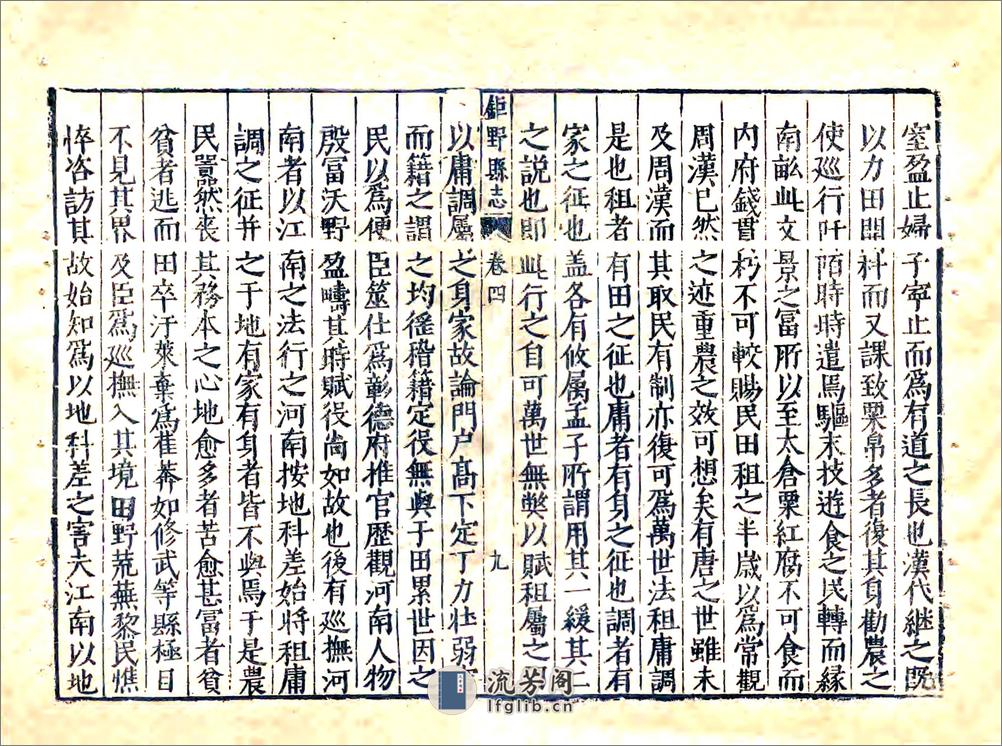 室盈止婦子寧止而爲有道之長也漢代継之既
以力田開科而又課致粟帛多者復其身勸農之
使廵行阡陌時遣焉驅末技遊食之民轉而縁
南畝此文景之富所以至太倉粟紅腐不可食而
内府錢貫朽不可較賜民田租之半歲以爲常觀
周漢已然之迹重農之效可想矣有唐之世雖未
及周漢而其取民有制亦復可爲萬世法租庸調
是也租者有田之征也庸者有身之征也調者有
家之征也盖各有攸属孟子所謂用其一緩其二
之説也即此行之自可萬世無弊以賦租屬之
鉅野縣志 卷四 九
以庸調屬之身家故論門户髙下定丁力壮弱
而籍之謂之均徭稽籍定役無與于田累世因之
民以爲便臣筮仕爲彰德府推官歴觀河南人物
殷富沃野盈疇其時賦役尚如故也後有巡撫河
南者以江南之法行之河南按地科差始將租庸
調之征并之于地有家有身者皆不與焉于是農
民嚣然喪其務本之心地愈多者苦愈甚富者貧
貧者逃而田卒汙萊棄爲萑莽如修武等縣極目
不見其界及臣爲巡撫入其境田野荒蕪黎民憔
悴咨訪其故始知爲以地科差之害夫江南以地
流芳阁
lfglib.cn